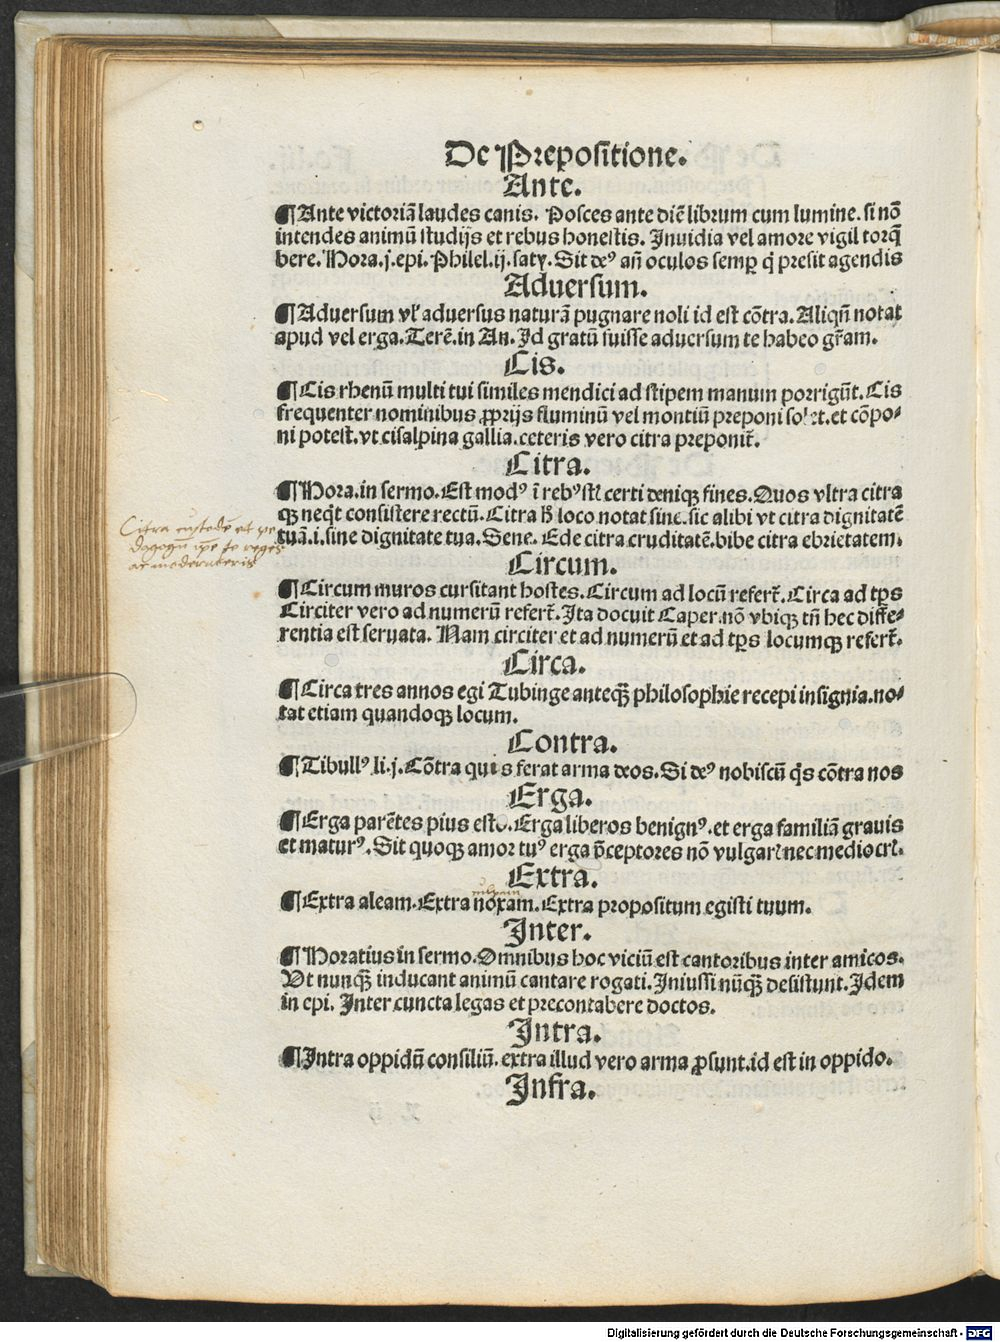 De Prepositione.
Ante.
¶Ante victoriā laudes canis. Posces ante diē librum cum lumine. si nō
intendes animū studijs et rebus honestis. Inuidia vel amore vigil torq̄
bere. Hora. j. epi. Philel. ij. saty. Sit deꝰ añ oculos semꝑ q̇ presit agendis
Aduersum.
¶Aduersum vl' aduersus naturā pugnare noli id est cōtra. Aliqñ notat
apud vel erga. Terē. in An. Id gratū fuisse aduersum te habeo gr̄am.
Cis.
¶Cis rhenū multi tui similes mendici ad stipem manum porrigūt. Cis
frequenter nominibus ꝓprijs fluminū vel montiū preponi solet. et cōpo-
ni potest. vt cisalpina gallia. ceteris vero citra preponit̄.
Citra.
¶Hora. in sermo. Est modꝰ ī rebꝰ sūt certi deniqꝫ fines. Quos vltra citra
qꝫ neq̇t consistere rectū. Citra hͦ loco notat sine. sic alibi vt citra dignitatē
tuā. i. sine dignitate tua. Sene. Ede citra cruditatē. bibe citra ebrietatem.
Citra custodē et pe
dagogū ip̄e te reges
ac moderaberis
Circum.
¶Circum muros cursitant hostes. Circum ad locū refert̄. Circa ad tp̄s
Circiter vero ad numerū refert̄. Ita docuit Caper. nō vbiqꝫ tñ hec diffe-
rentia est seruata. Nam circiter et ad numerū et ad tp̄s locumqꝫ refert̄.
Circa.
¶Circa tres annos egi Tubinge anteqꝫ̄ philosophie recepi insignia. no-
tat etiam quandoqꝫ locum.
Contra.
¶Tibullꝰ li. j. Cōtra quis ferat arma deos. Si deꝰ nobiscū q̇s cōtra nos
Erga.
¶Erga parētes pius esto. Erga liberos benignꝰ. et erga familiā grauis
et maturꝰ. Sit quoqꝫ amor tuꝰ erga p̄ceptores nō vulgaris nec mediocris.
Extra.
culpam
¶Extra aleam. Extra noxam. Extra propositum egisti tuum.
Inter.
¶Horatius in sermo. Omnibus hoc viciū est cantoribus inter amicos.
Vt nunqꝫ̄ inducant animū cantare rogati. Iniussi nūqꝫ̄ desistunt. Idem
in epi. Inter cuncta legas et precontabere doctos.
Intra.
¶Intra oppidū consiliū. extra illud vero arma ꝓsunt. id est in oppido.
Infra.
Digitalisierung gefördert durch die Deutsche Forschungsgemeinschaft - DFG